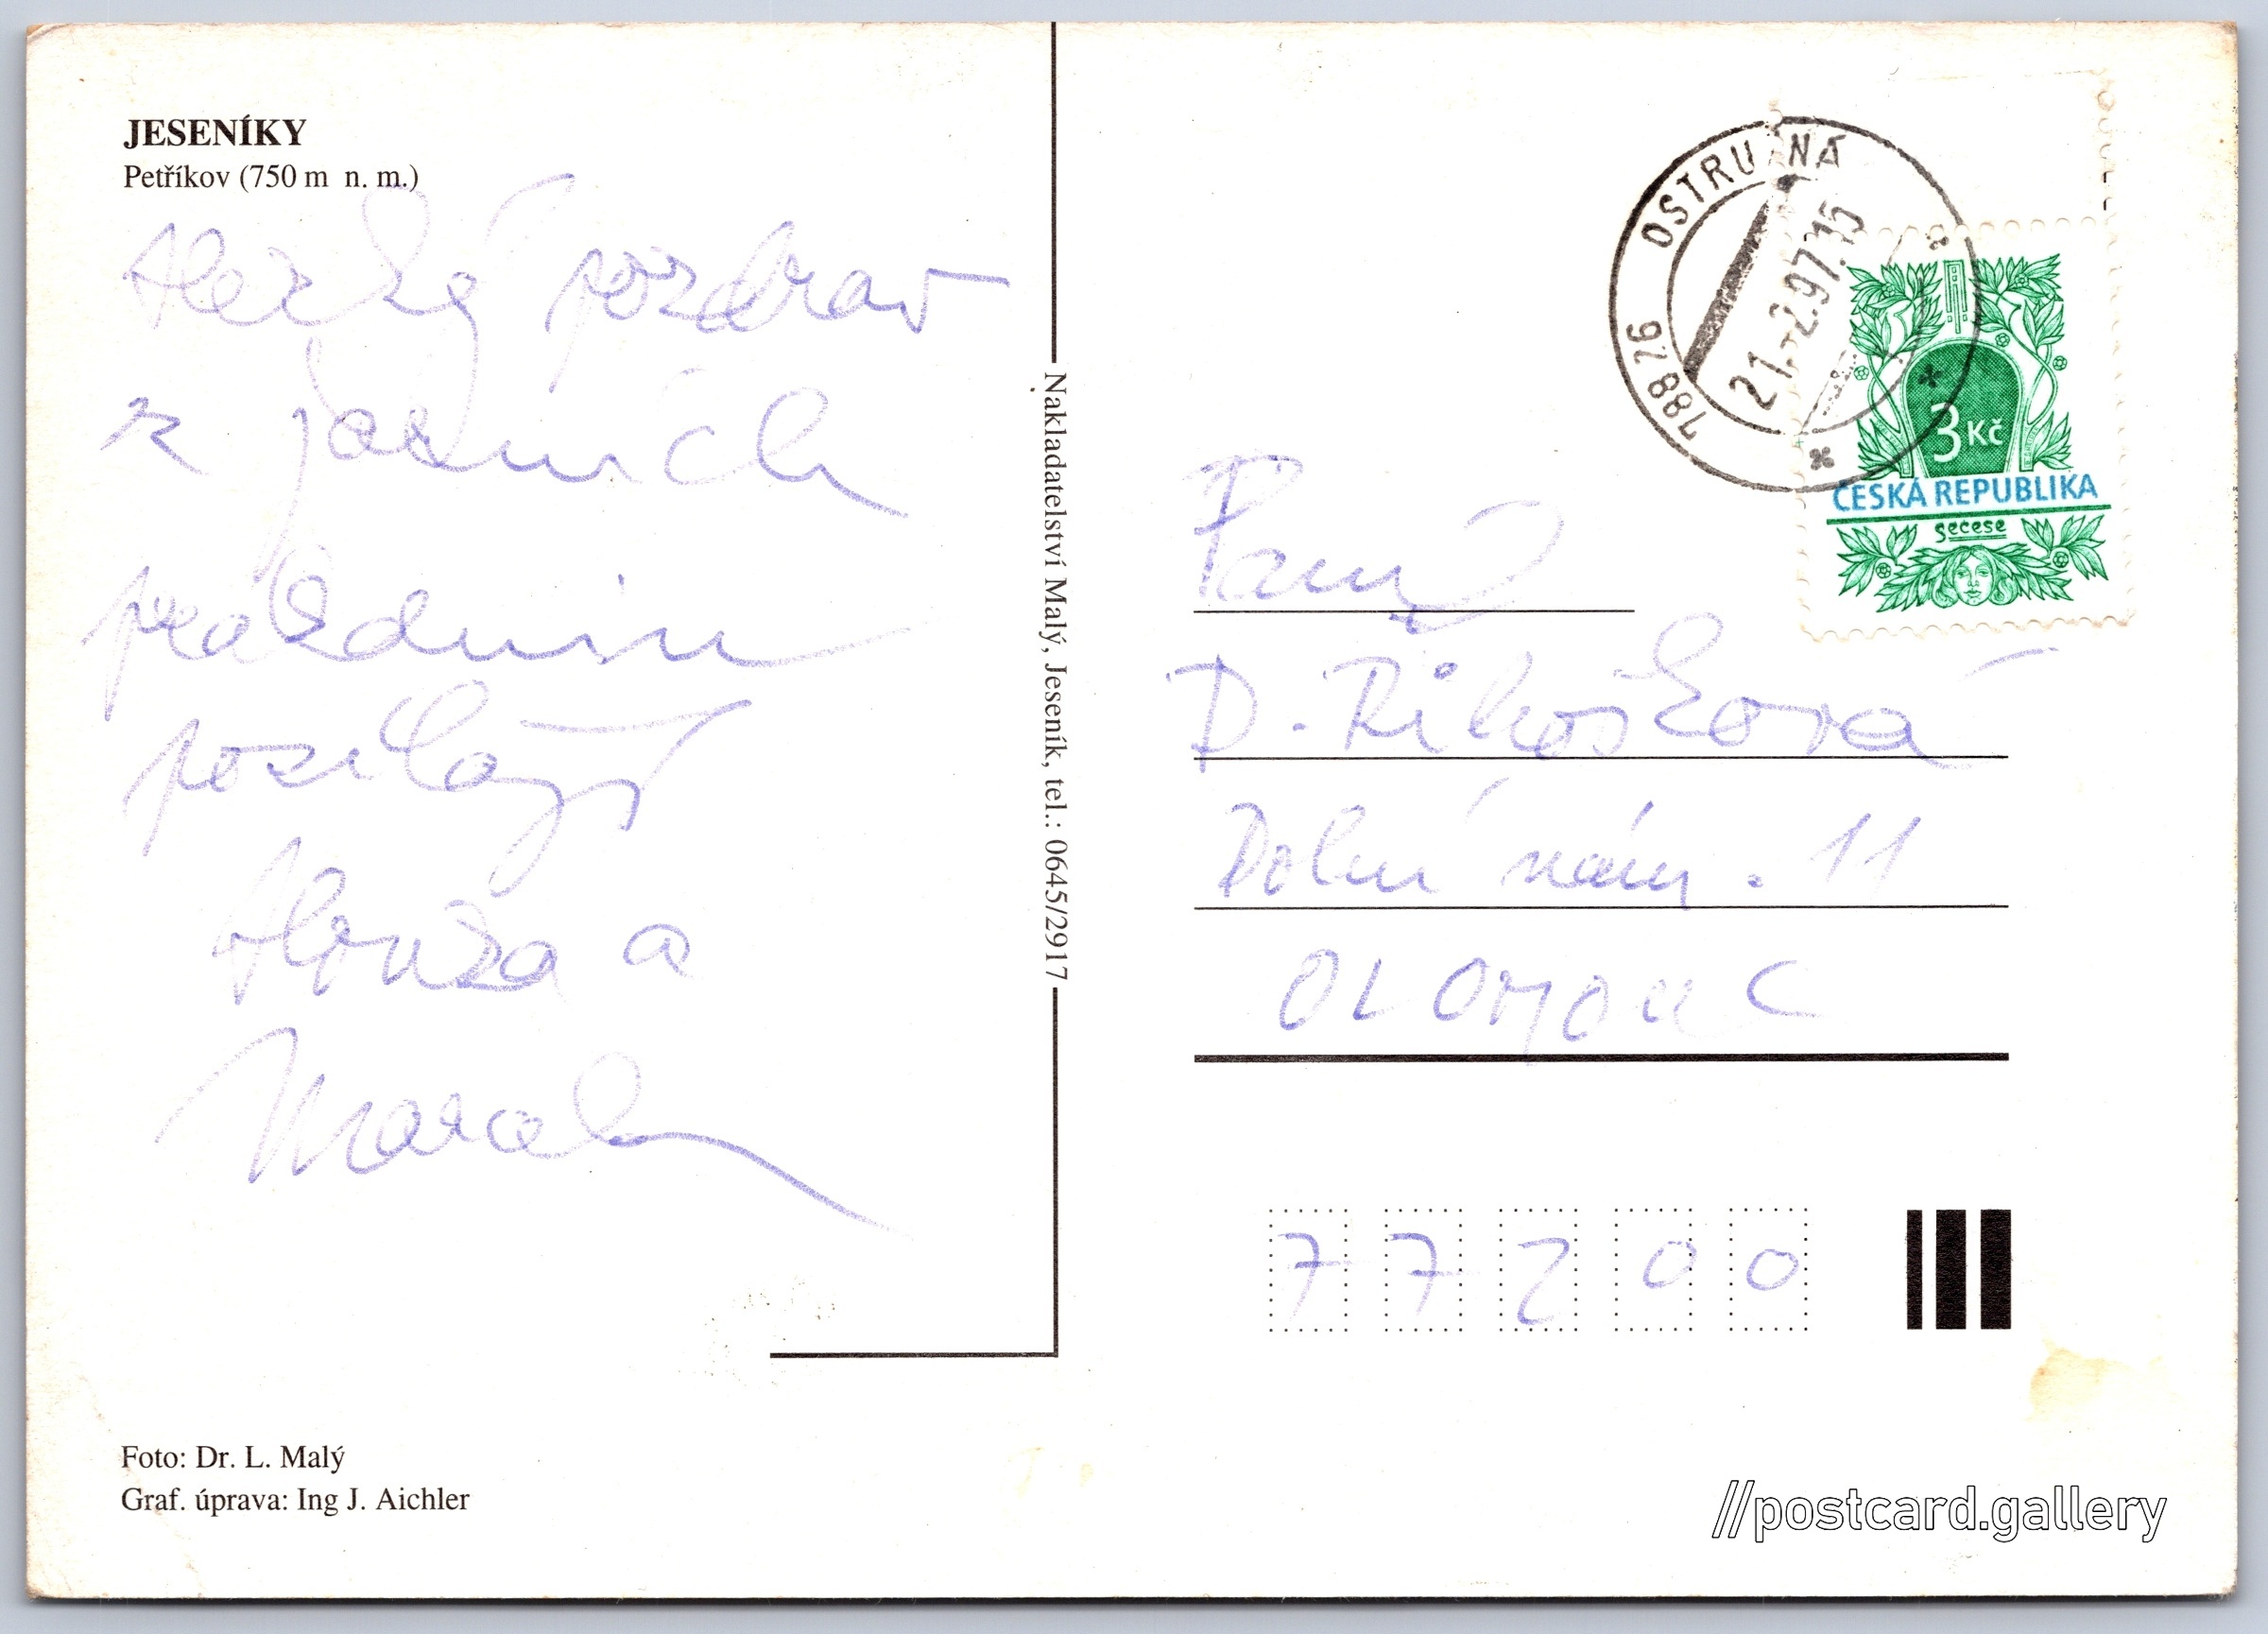 JESENÍKY
Petříkov (750 m n. m.)
Hezký pozdrav
z jarních
prázdnin
posílají
Honza a
Marcela
Foto: Dr. L. Malý
Graf. úprava: Ing J. Aichler
Nakladatelství Malý, Jeseník, tel.: 0645/2917
788 26 OSTRUŽNÁ
21.-2.97.15
3 Kč
ČESKÁ REPUBLIKA
secese
Paní
D. Řihošková
Dolní nám. 11
OLOMOUC
77200
//postcard.gallery